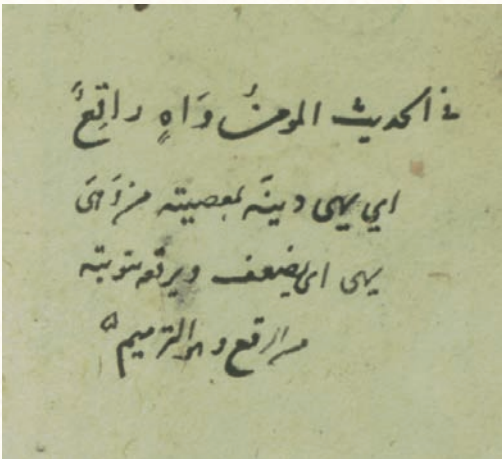 في الحديث المومنُ وَاهٍ راقِعٌ
اي يهي دينَه بمعصيته من وَهَى
يهي اي يضعف ويرقعه بتوبته
من الرقع وهو الترميم